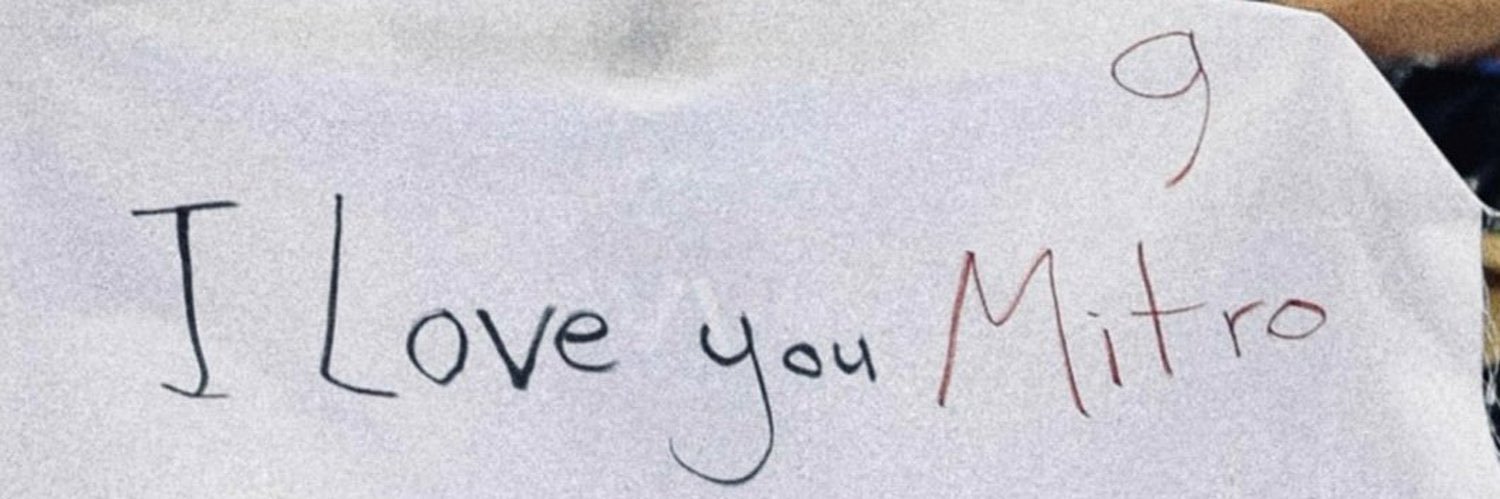 9
I Love you Mitro